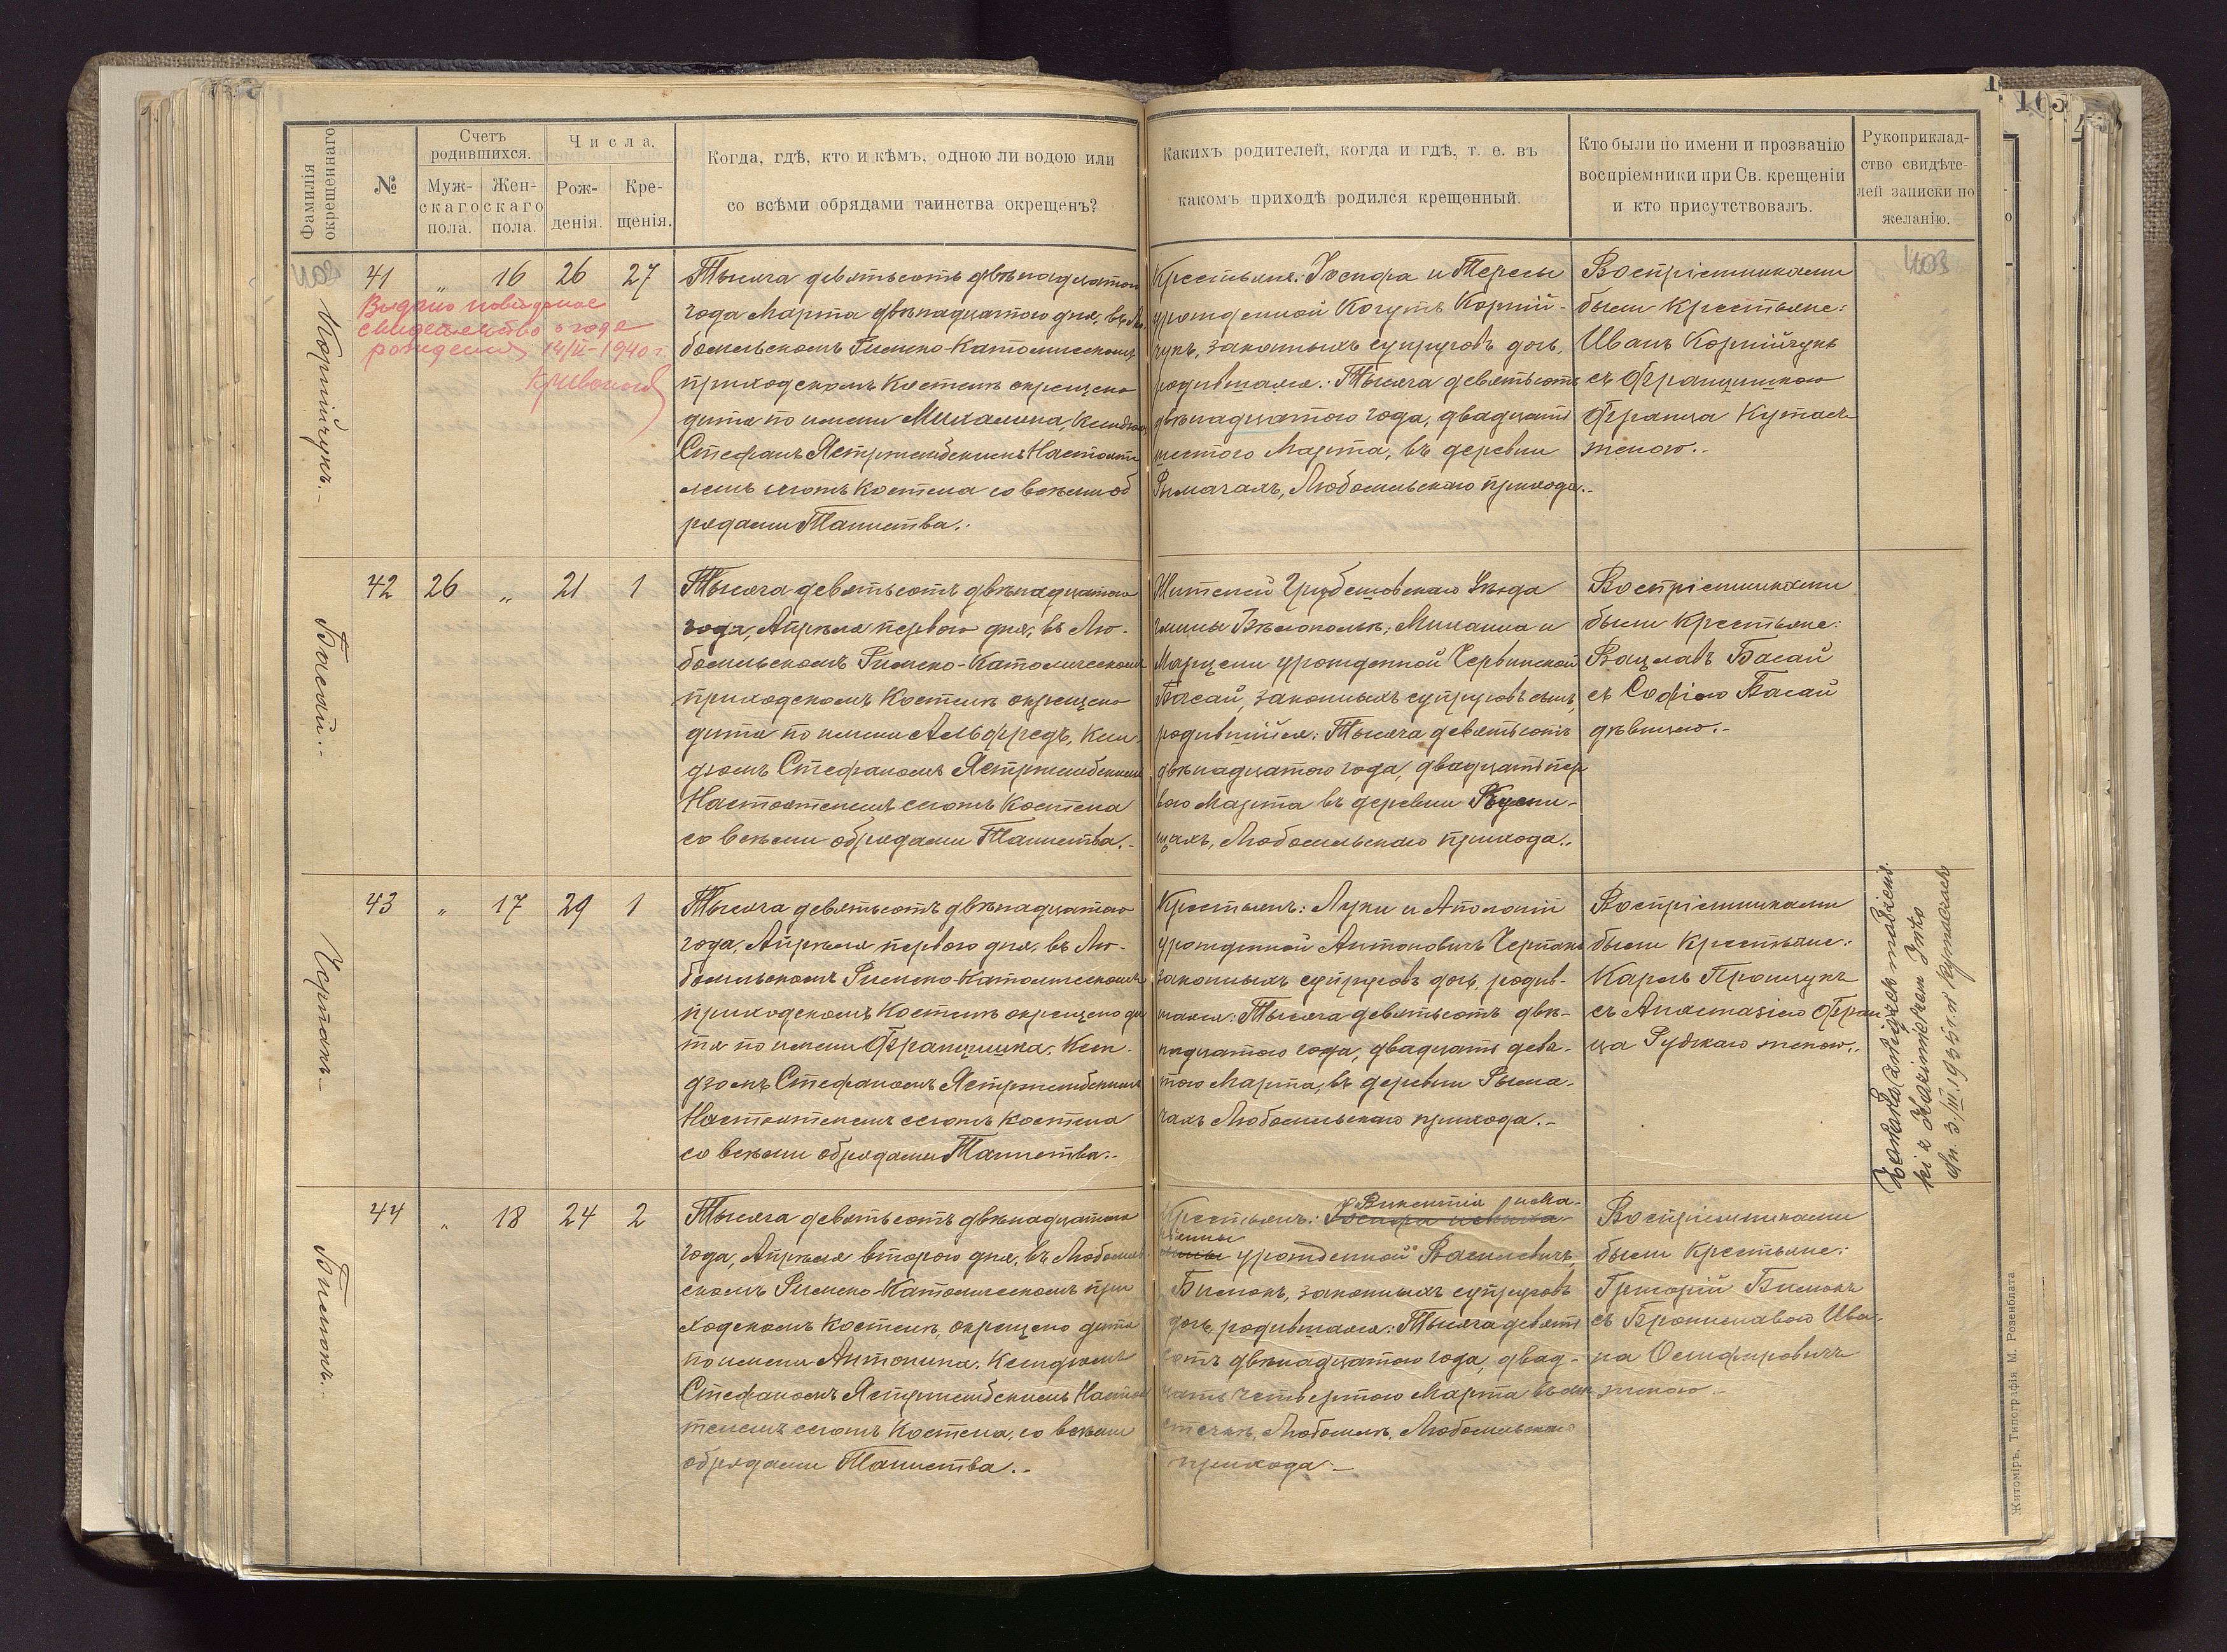 Фамилія окрещеннаго
№
Счетъ родившихся.
Мужскаго пола.
Женскаго пола.
Числа.
Рожденія.
Крещенія.
Когда, гдѣ, кто и кѣмъ, одною ли водою или
со всѣми обрядами таинства окрещенъ?
Какихъ родителей, когда и гдѣ, т. е. въ
какомъ приходѣ родился крещенный.
Кто были по имени и прозванію
воспріемники при Св. крещеніи
и кто присутствовалъ.
Рукоприклад-
ство свидѣте-
лей записки по
желанію.
403
Корнійчукъ.-
41 „ 16 26 27
Видано
свидетельство о годе
рождения 14/II-1940 г.
Тысяча девятьсотъ двѣнадцатаго
года Марта двадцатого дня, въ Лю-
бомльскомъ Римско-Католическомъ
приходскомъ Костелѣ окрещено
дитя по имени Михалина, Ксендзомъ
Стефаномъ Ястржембскимъ Настояте-
лемъ сегожъ Костела со всѣми об
рядами Таинства.
Крестьянъ: Іосифа и Терезы
урожденной Когутъ Корній-
чукъ, законныхъ супруговъ дочь,
родившаяся: Тысяча девятьсотъ
двѣнадцатого года, двадцать
шестого Марта, въ деревни
Рымачахъ, Любомльскаго прихода.-
Воспріемниками
были крестьяне:
Иванъ Корнійчукъ
съ Францишкою
Франца
женою.-
Басай.-
42 26 „ 21 1
Тысяча девятьсотъ двѣнадцатого
года, Апрѣля перваго дня, въ Лю-
бомльскомъ Римско-Католическомъ
приходскомъ Костелѣ окрещено
дитя по имени Альфредъ, Ксен-
дзомъ Стефаномъ Ястржембскимъ
Настоятелемъ сегожъ Костела
со всѣми обрядами Таинства.-
Жителей Грубешовскаго Уѣзда
гмины Бѣлополь, Михаила и
Марцели урожденной Червинской
Басай, законныхъ супруговъ сынъ,
родившійся: Тысяча девятьсотъ
двѣнадцатого года, двадцать пер
ваго Марта въ деревни Кусни-
щахъ, Любомльскаго прихода.-
Воспріемниками
были крестьяне:
Вацлавъ Басай
съ Софіею Басай
дѣвицею.-
Черпакъ.-
43 „ 17 29 1
Тысяча девятьсотъ двѣнадцатаго
года, Апрѣля перваго дня, въ Лю-
бомльскомъ Римско-Католическомъ
приходскомъ Костелѣ окрещено ди
тя по имени Францишка, Ксен-
дзомъ Стефаномъ Ястржембскимъ
Настоятелемъ сегожъ Костела
со всѣми обрядами Таинства.-
Крестьянъ: Луки и Аполоніи
урожденной Антоновичъ Черпакъ
законныхъ супруговъ дочь, родив-
шаяся: Тысяча девятьсотъ двѣ-
надцатого года, двадцать девя-
того Марта, въ деревни Рыма-
чахъ Любомльскаго прихода.-
Воспріемниками
были крестьяне:
Карлъ
съ Анастазіею Фран
ца Рудскаго женою.-
Zawarła związek małżeńs
ki z Kazimierzem
dn. 3/III. 1935 r. w Rymaczach
Бимокъ.-
44 „ 18 24 2
Тысяча девятьсотъ двѣнадцатого
года, Апрѣля второго дня, въ Любомль
скомъ Римско-Католическомъ при
ходскомъ Костелѣ, окрещено дитя
по имени Антонина, Ксендзомъ
Стефаномъ Ястржембскимъ Настоя
телемъ сегожъ Костела, со всѣми
обрядами Таинства.-
Викентія и Ма-
Крестьянъ:
ріанны
урожденной Василевичъ
Бимокъ, законныхъ супруговъ
дочь, родившаяся: Тысяча девять
сотъ двѣнадцатого года, двад-
цать четвертого Марта въ мѣ
стечкѣ Любомлѣ, Любомльскаго
прихода.-
Воспріемниками
были крестьяне:
Григорій Бимокъ
съ Брониславою Ива-
на
женою.-
Житоміръ, Типографія М. Розенблата